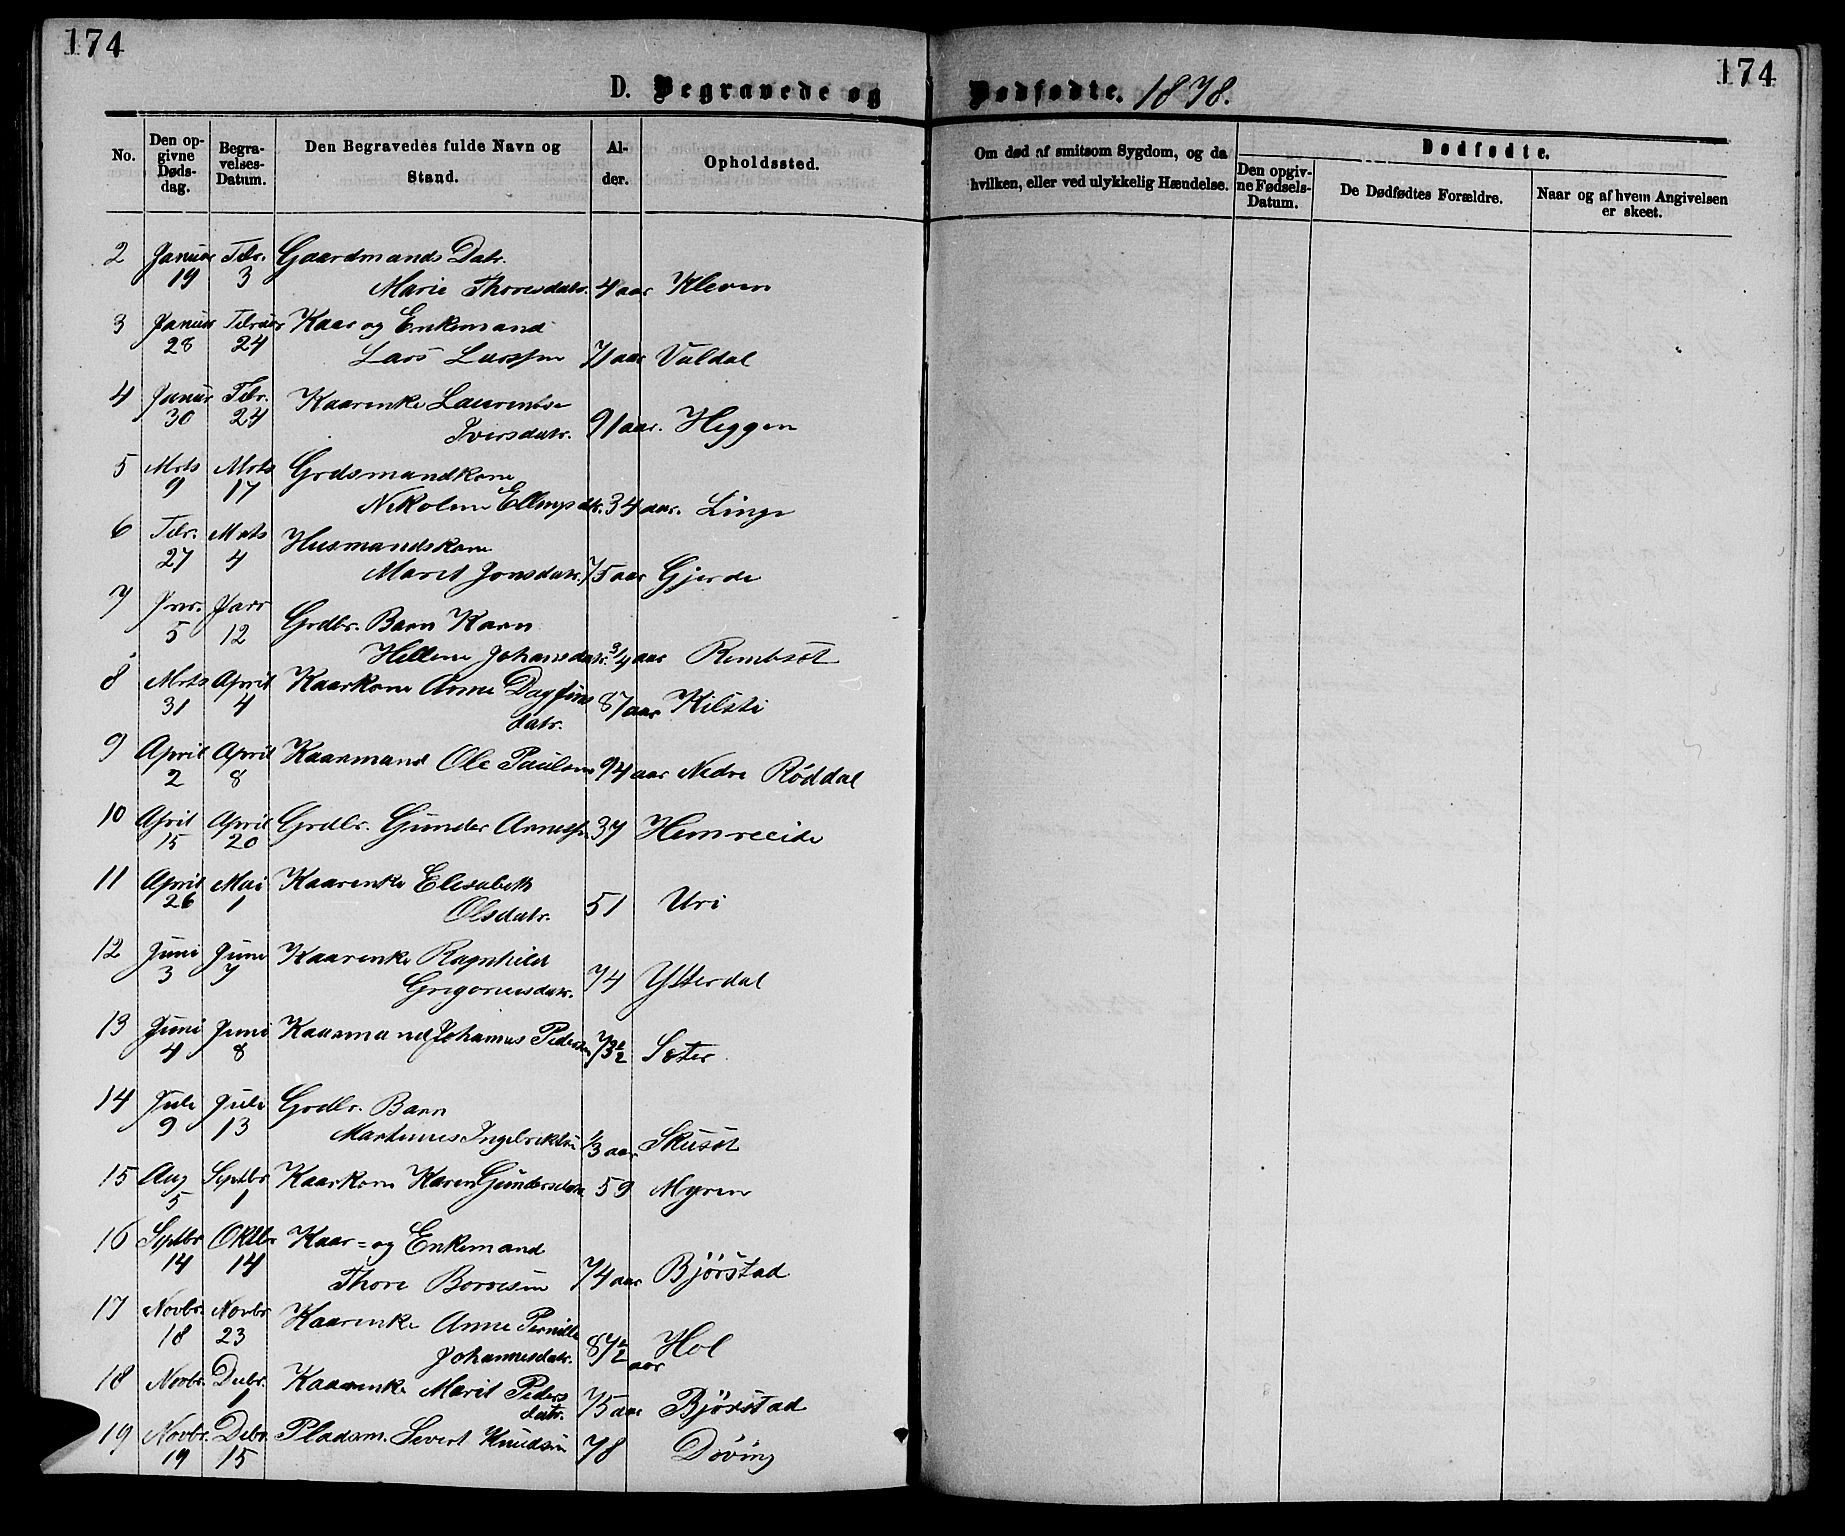 174
174
D. Begravede og Dødfødte. 1878.
No.
Den opgivne Dødsdag.
Begravelses-Datum.
Den Begravedes fulde Navn og Stand.
Alder.
Opholdssted.
Om død af smitsom Sygdom, og da hvilken, eller ved ulykkelig Hændelse.
Dødfødte.
Den opgivne Fødsels-Datum.
De Dødfødtes Forældre.
Naar og af hvem Angivelsen er skeet.
2 Januar 19 Febr. 3 Gaardmands Datr.
Marie Thoresdatr. 4 aar Kleven
3 Januar 28 Februar 24 Kaar og Enkemand
Lars Larssen 71 aar Valdal
4 Januar 30 Febr. 24 Kaarenke Laurentse
Iversdatr. 91 aar. Heggen
5 Mrts 9 Mrts 17 Grdsmandkone
Nikoline Ellingsdtr. 34 aar. Linge
6 Febr. 27 Mrts 4 Husmandskone
Marit Jonsdatr. 75 aar Gjerde
7 Jnr. 5 Janr 12 Grdbr. Barn Karn
Hellene Johansdatr. 3/4 aar Rembsøt
8 Mrts 31 April 4 Kaarkone Anne Dagfins
datr. 87 aar Kilsti
9 April 2 April 8 Kaarmand Ole Paulsen 94 aar Nedre Røddal
10 April 15 April 20 Grdbr. Gunder Arnessn 37 Hemreeide
11 April 26 Mai 1 Kaarenke Elesabeth
Olsdatr. 51 Uri
12 Juni 3 Juni 7 Kaarenke Ragnhild
Gregoriusdatr. 74 Ytterdal
13 Juni 4 Juni 8 Kaarmand Johannes Pedersen 73 1/2 Sæter
14 Juli 9 Juli 13 Grdbr. Barn
Martinus Ingebriktsn 1/3 aar Skusøt
15 Aug 5 Septbr 1 Kaarkone Karen Gundersdatr 59 Myren
16 Septbr 14 Oktbr 14 Kaar= og Enkemand
Thore Borresen 74 aar Bjørstad
17 Novbr. 18 Novbr 23 Kaarenke Anne Pernille
Johannesdatr. 87 1/2 aar Hol
18 Novbr. Decbr. 1 Kaarenke Marit Peders
datr. 75 aar Bjørstad
19 Novbr. 19 Debr. 15 Pladsm. Severt Knudsen 78 Døving